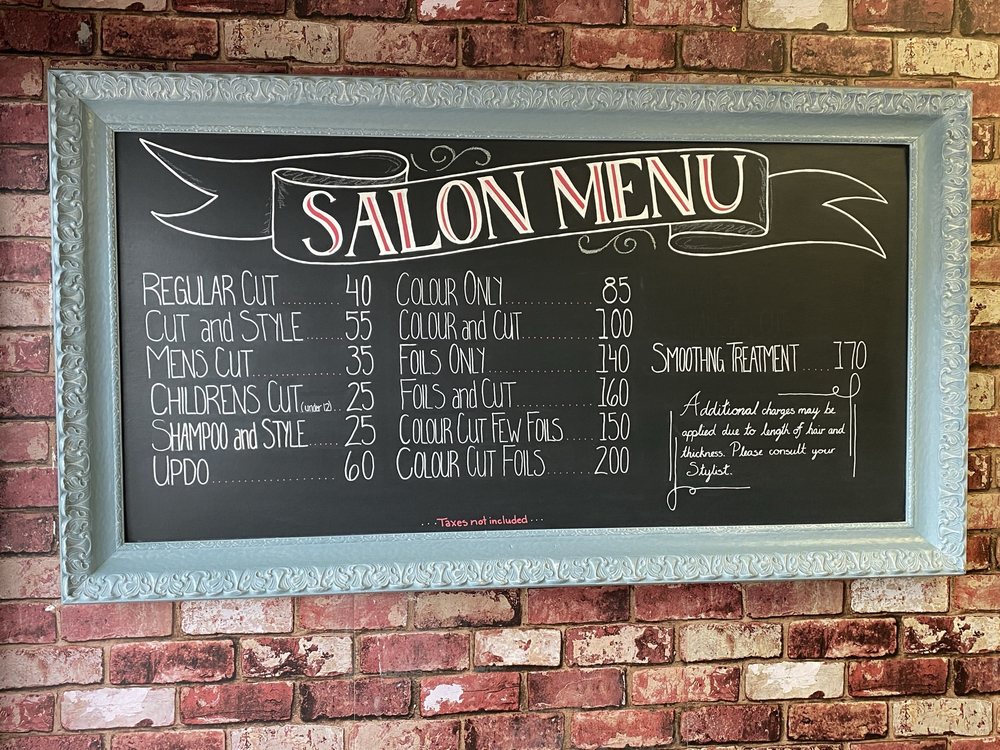 SALON MENU
REGULAR CUT.............40
CUT and STYLE........55
MENS CUT...............35
CHILDRENS CUT(under 12)...25
SHAMPOO and STYLE......25
UPDO....................60
COLOUR ONLY..............85
COLOUR and CUT...........100
FOILS ONLY................140
FOILS and CUT............160
COLOUR CUT FEW FOILS.....150
COLOUR CUT FOILS........200
SMOOTHNG TREATMENT.....170
Additional charges may be
applied due to length of hair and
thickness. Please consult your
Stylist.
...Taxes not included...